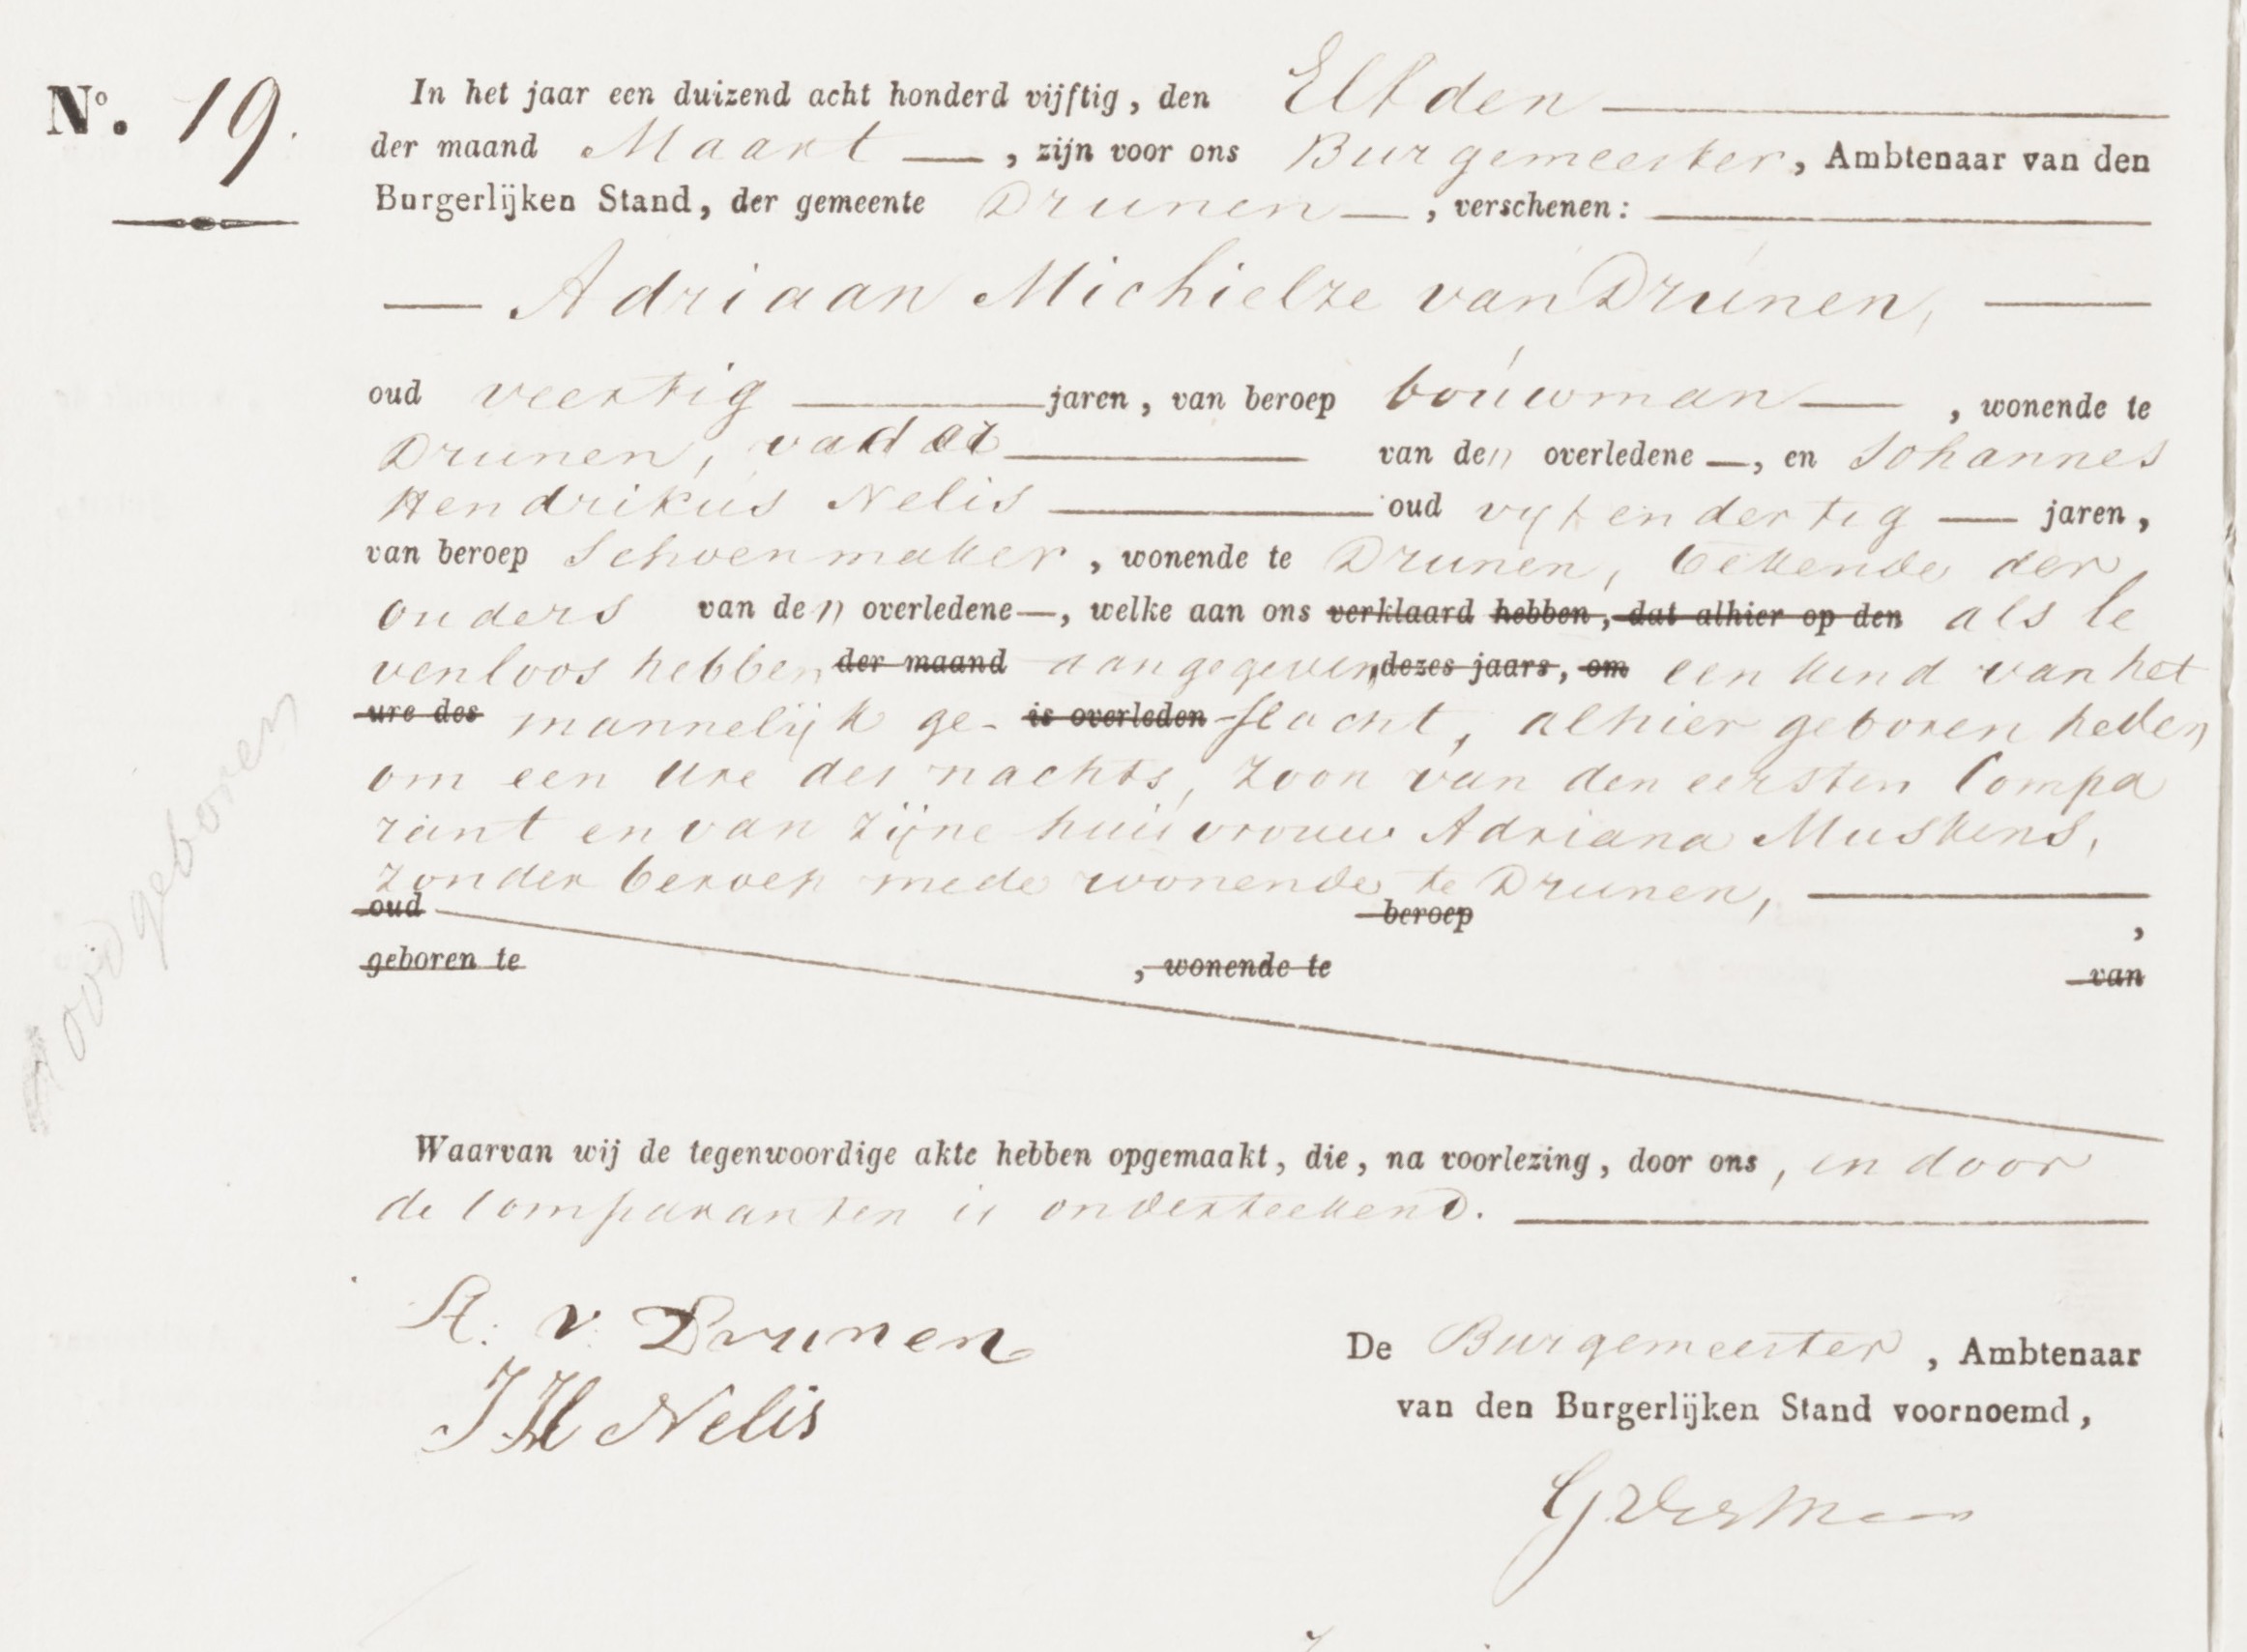 No. 19.
In het jaar een duizend acht honderd vijftig, den Elfden
der maand Maart —, zijn voor ons Burgemeester, Ambtenaar van den
Burgerlijken Stand, der gemeente Drunen —, verschenen:
— Adriaan Michielze van Drunen, —
oud veertig — jaren, van beroep bouwman —, wonende te
Drunen, vader — van den overledene —, en Johannes
Hendrikus Nelis — oud vyfendertig — jaren,
van beroep Schoenmaker, wonende te Drunen, bekende der
ouders van den overledene —, welke aan ons verklaard hebben, dat alhier op den als le
venloos hebben der maand aangegeven dezes jaars, om een kind van het
ure des mannelijk ge- is overleden -slacht, alhier geboren heden
om een ure des nachts, zoon van den eersten Compa
rant en van zijne huisvrouw Adriana Muskens,
zonder beroep mede wonende te Drunen, —
oud beroep ,
geboren te , wonende te van
doodgeboren
Waarvan wij de tegenwoordige akte hebben opgemaakt, die, na voorlezing, door ons, en door
de Comparanten is onderteekend. —
A. v. Drunen
JH Nelis
De Burgemeester, Ambtenaar
van den Burgerlijken Stand voornoemd,